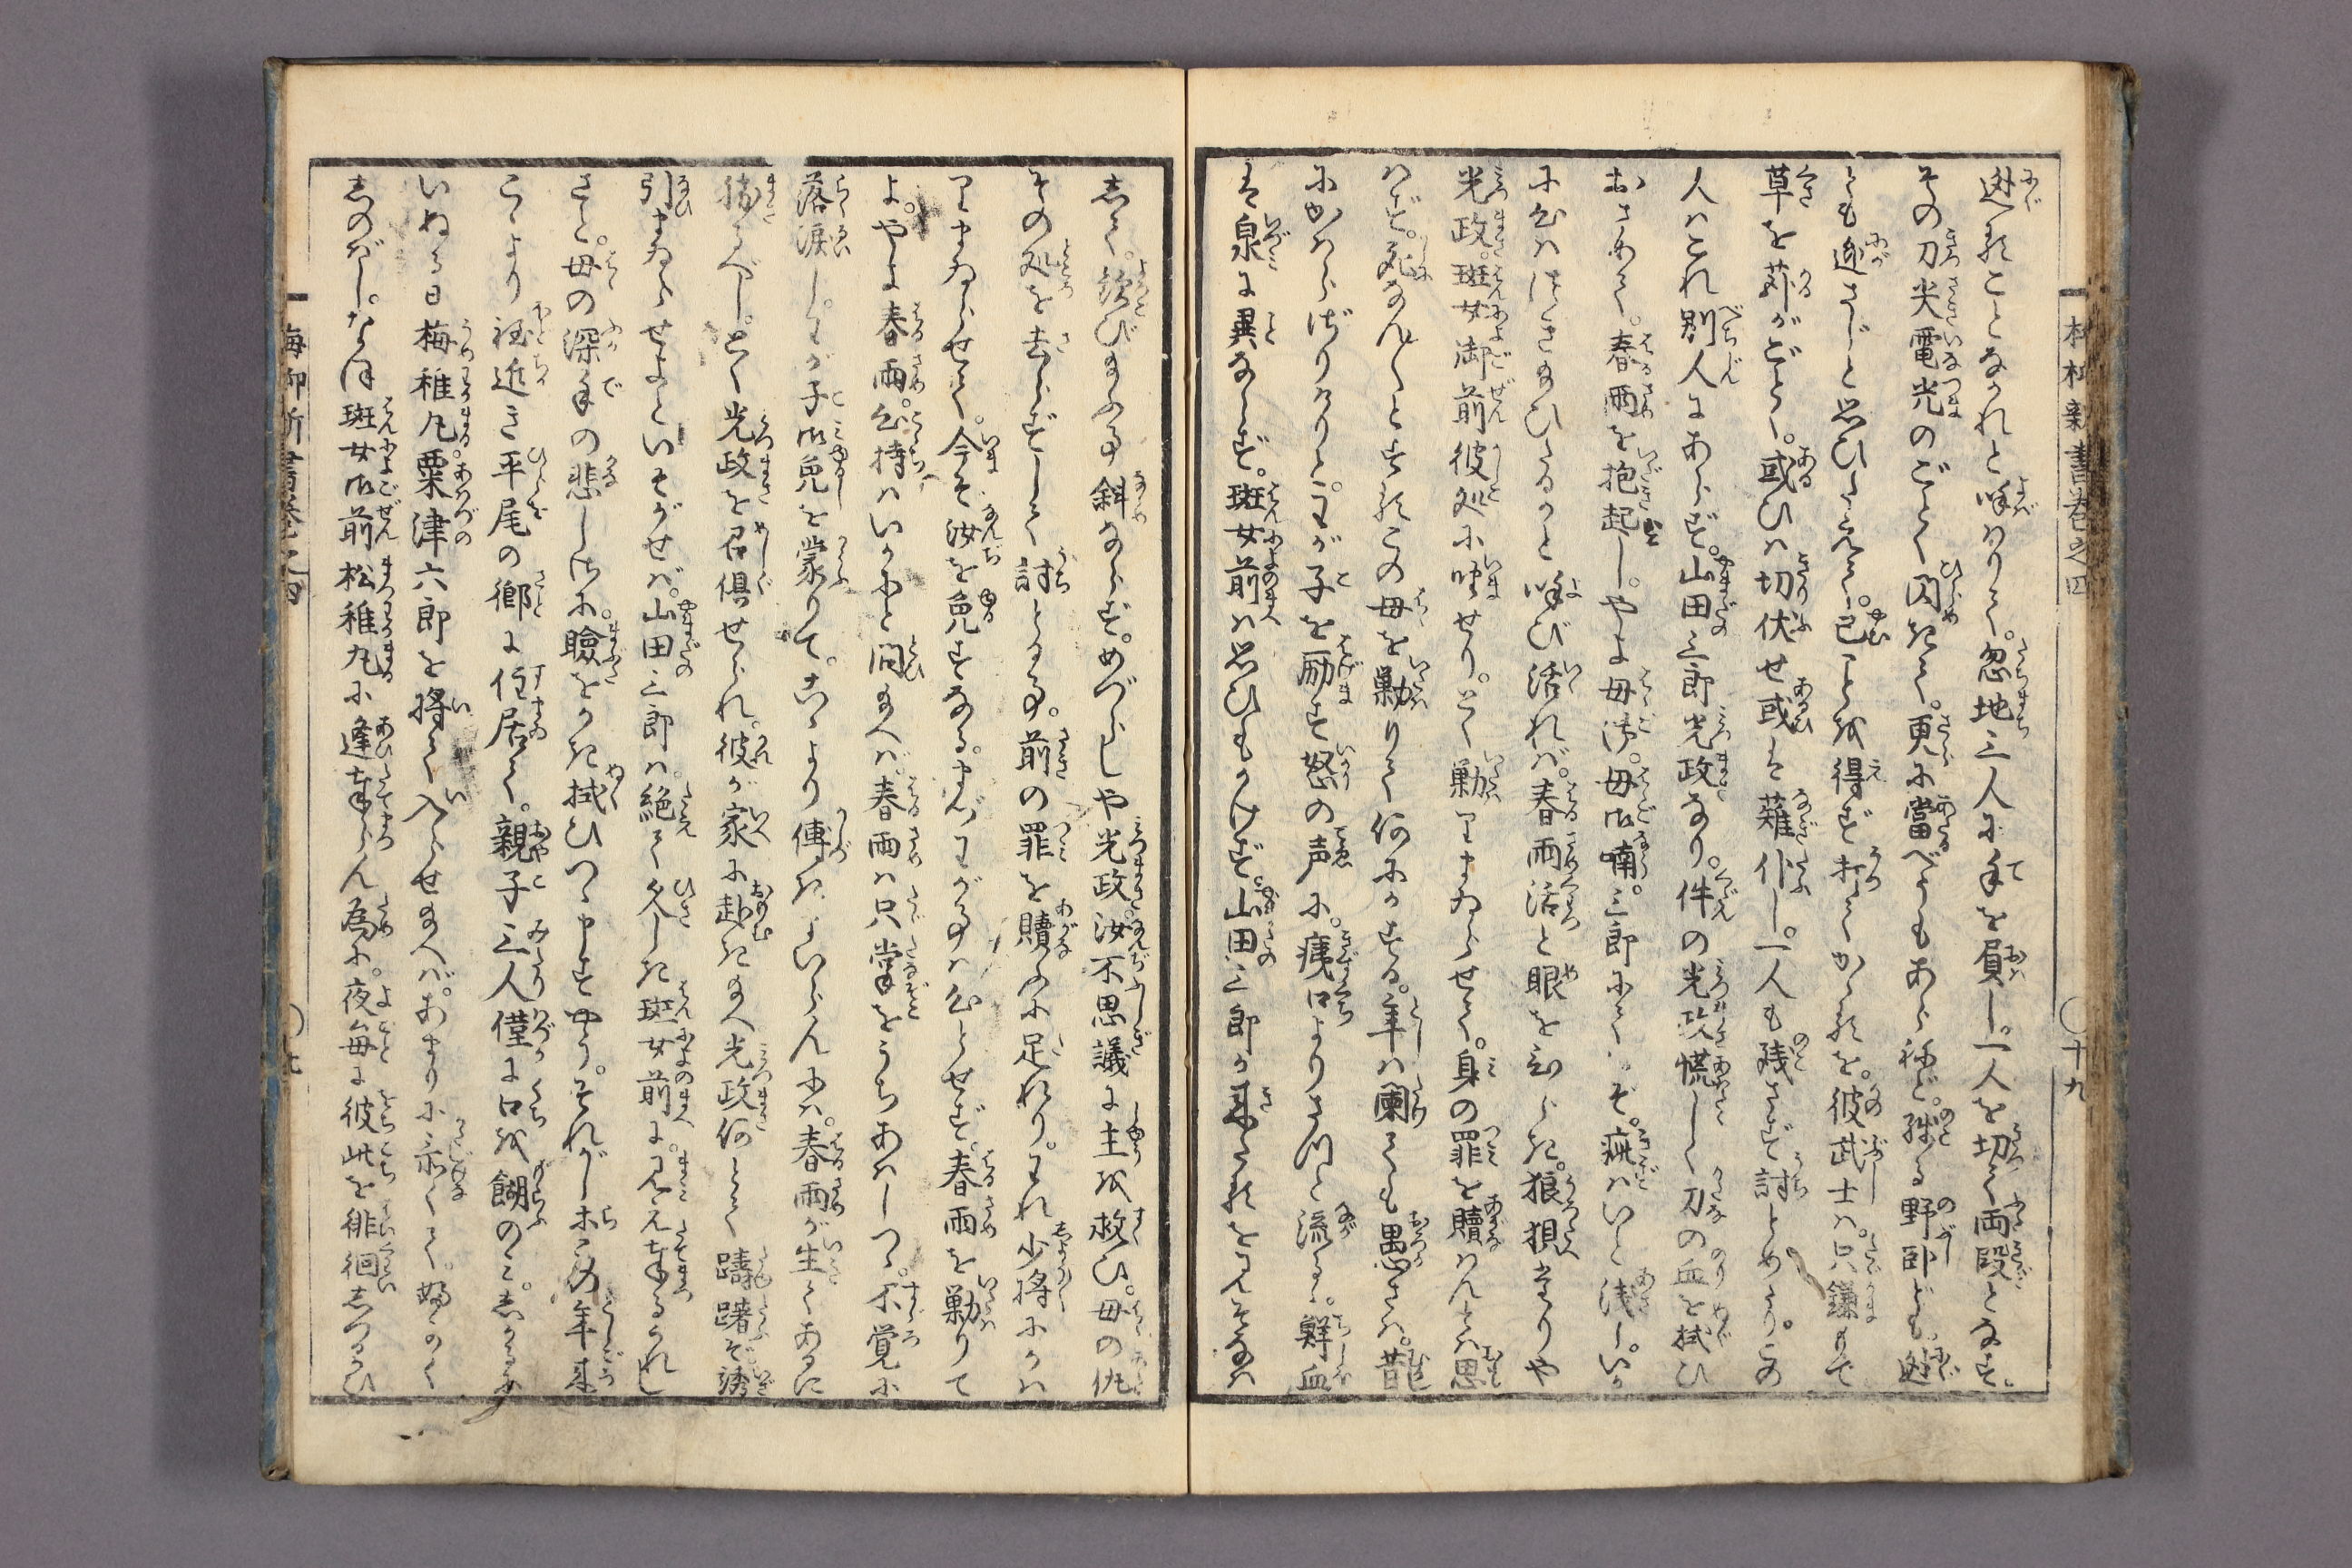 迯るることなかれと呼はりて。忽地三人に手を負し。一人を切て両段となす。
その刀尖電光のごとく閃きて。更に當べうもあらねど。残る野臥ども。迯
とも迯さじと思ひしかば。已ことを得ず打てかゝるを。彼武士は。只鎌もて
草を苅がごとく。或ひは切伏せ或は薙仆し。一人も残さず討とめたり。この
人はこれ別人にあらず。山田三郎光政なり。件の光政慌しく刀の血を拭ひ
おさめて。春雨を抱起し。やよ母御。母御喃。三郎にて候ぞ。疵はいと浅し。いか
に心はつきたまひたるかと呼び活れば。春雨活と眼を
光政。斑女御前彼処に唫せり。とく勦りまゐらせて。身の罪を贖はんとは思
はず。死なんとするこの母を勦りて何にかする。年は闌ても愚さは。昔
にかはらざりけりと。わが子を励す怒の声に。痍口よりさつと流るゝ。鮮血
は泉に異ならず。斑女前は思ひもかけず。山田三郎が来つるを見そなは
して。歓びたまふ事斜ならず。めづらしや光政。汝不思議に主を救ひ。母の仇
その処を去らずして討とる事。前の罪を贖ふに足れり。われ少将にかは
りまゐらせて。今ぞ汝を免すなる。まづわが事は心とせず。春雨を勦りて
よ。やよ春雨。心持はいかにと問給へば。春雨は只掌をうちあはしつゝ。不覚に
落涙し。わが子御免を蒙りて。けふより傅きまいらんには。春雨が生てあるに
勝るべし。とく光政を召倶せられ。彼が家に赴き給へ光政何とて躊躇ぞ誘
引まゐらせよといそがせば。山田三郎は。絶て久しき斑女前に。見え奉るうれし
さと。母の深手の悲しさに瞼をかき拭ひつゝ申すやう。それがしホこの年来
こゝより程近き平尾の郷に住居て。親子三人僅に口を餬のみ。しかるに
いぬる日梅稚丸。粟津六郎を将て入らせ給へば。あまりに忝くて。
しのばし。なほ斑女御前松稚丸に逢奉らん為に。夜毎に彼此を徘徊しつるひ
梅柳新書巻之四
十九